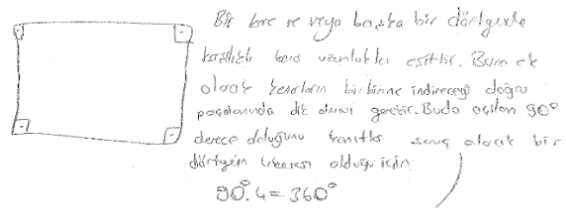 Bir kare ve veya başka bir dörtgende
karşılıklı kenar uzunlukları eşittir. Buna ek
olarak kenarların birbirine indireceği doğru
parçalarında dik olması gerektir. Buda açıların 90°
derece olduğunu kanıtlar sonuç olarak bir
dörtgen olduğu için
90°.4=360°